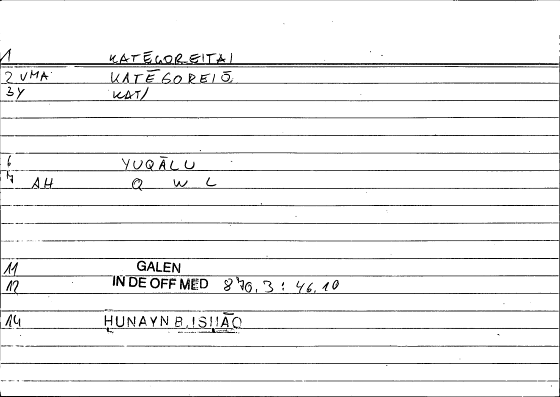 1 KATĒGOREITAI
2 VMA KATĒGOREIŌ
3Y KAT/
6 YUQĀLU
7 AH Q W L
11 GALEN
12 IN DE OFF MED 870,3 : 46,10
14 HUNAYN B. ISḤĀQ